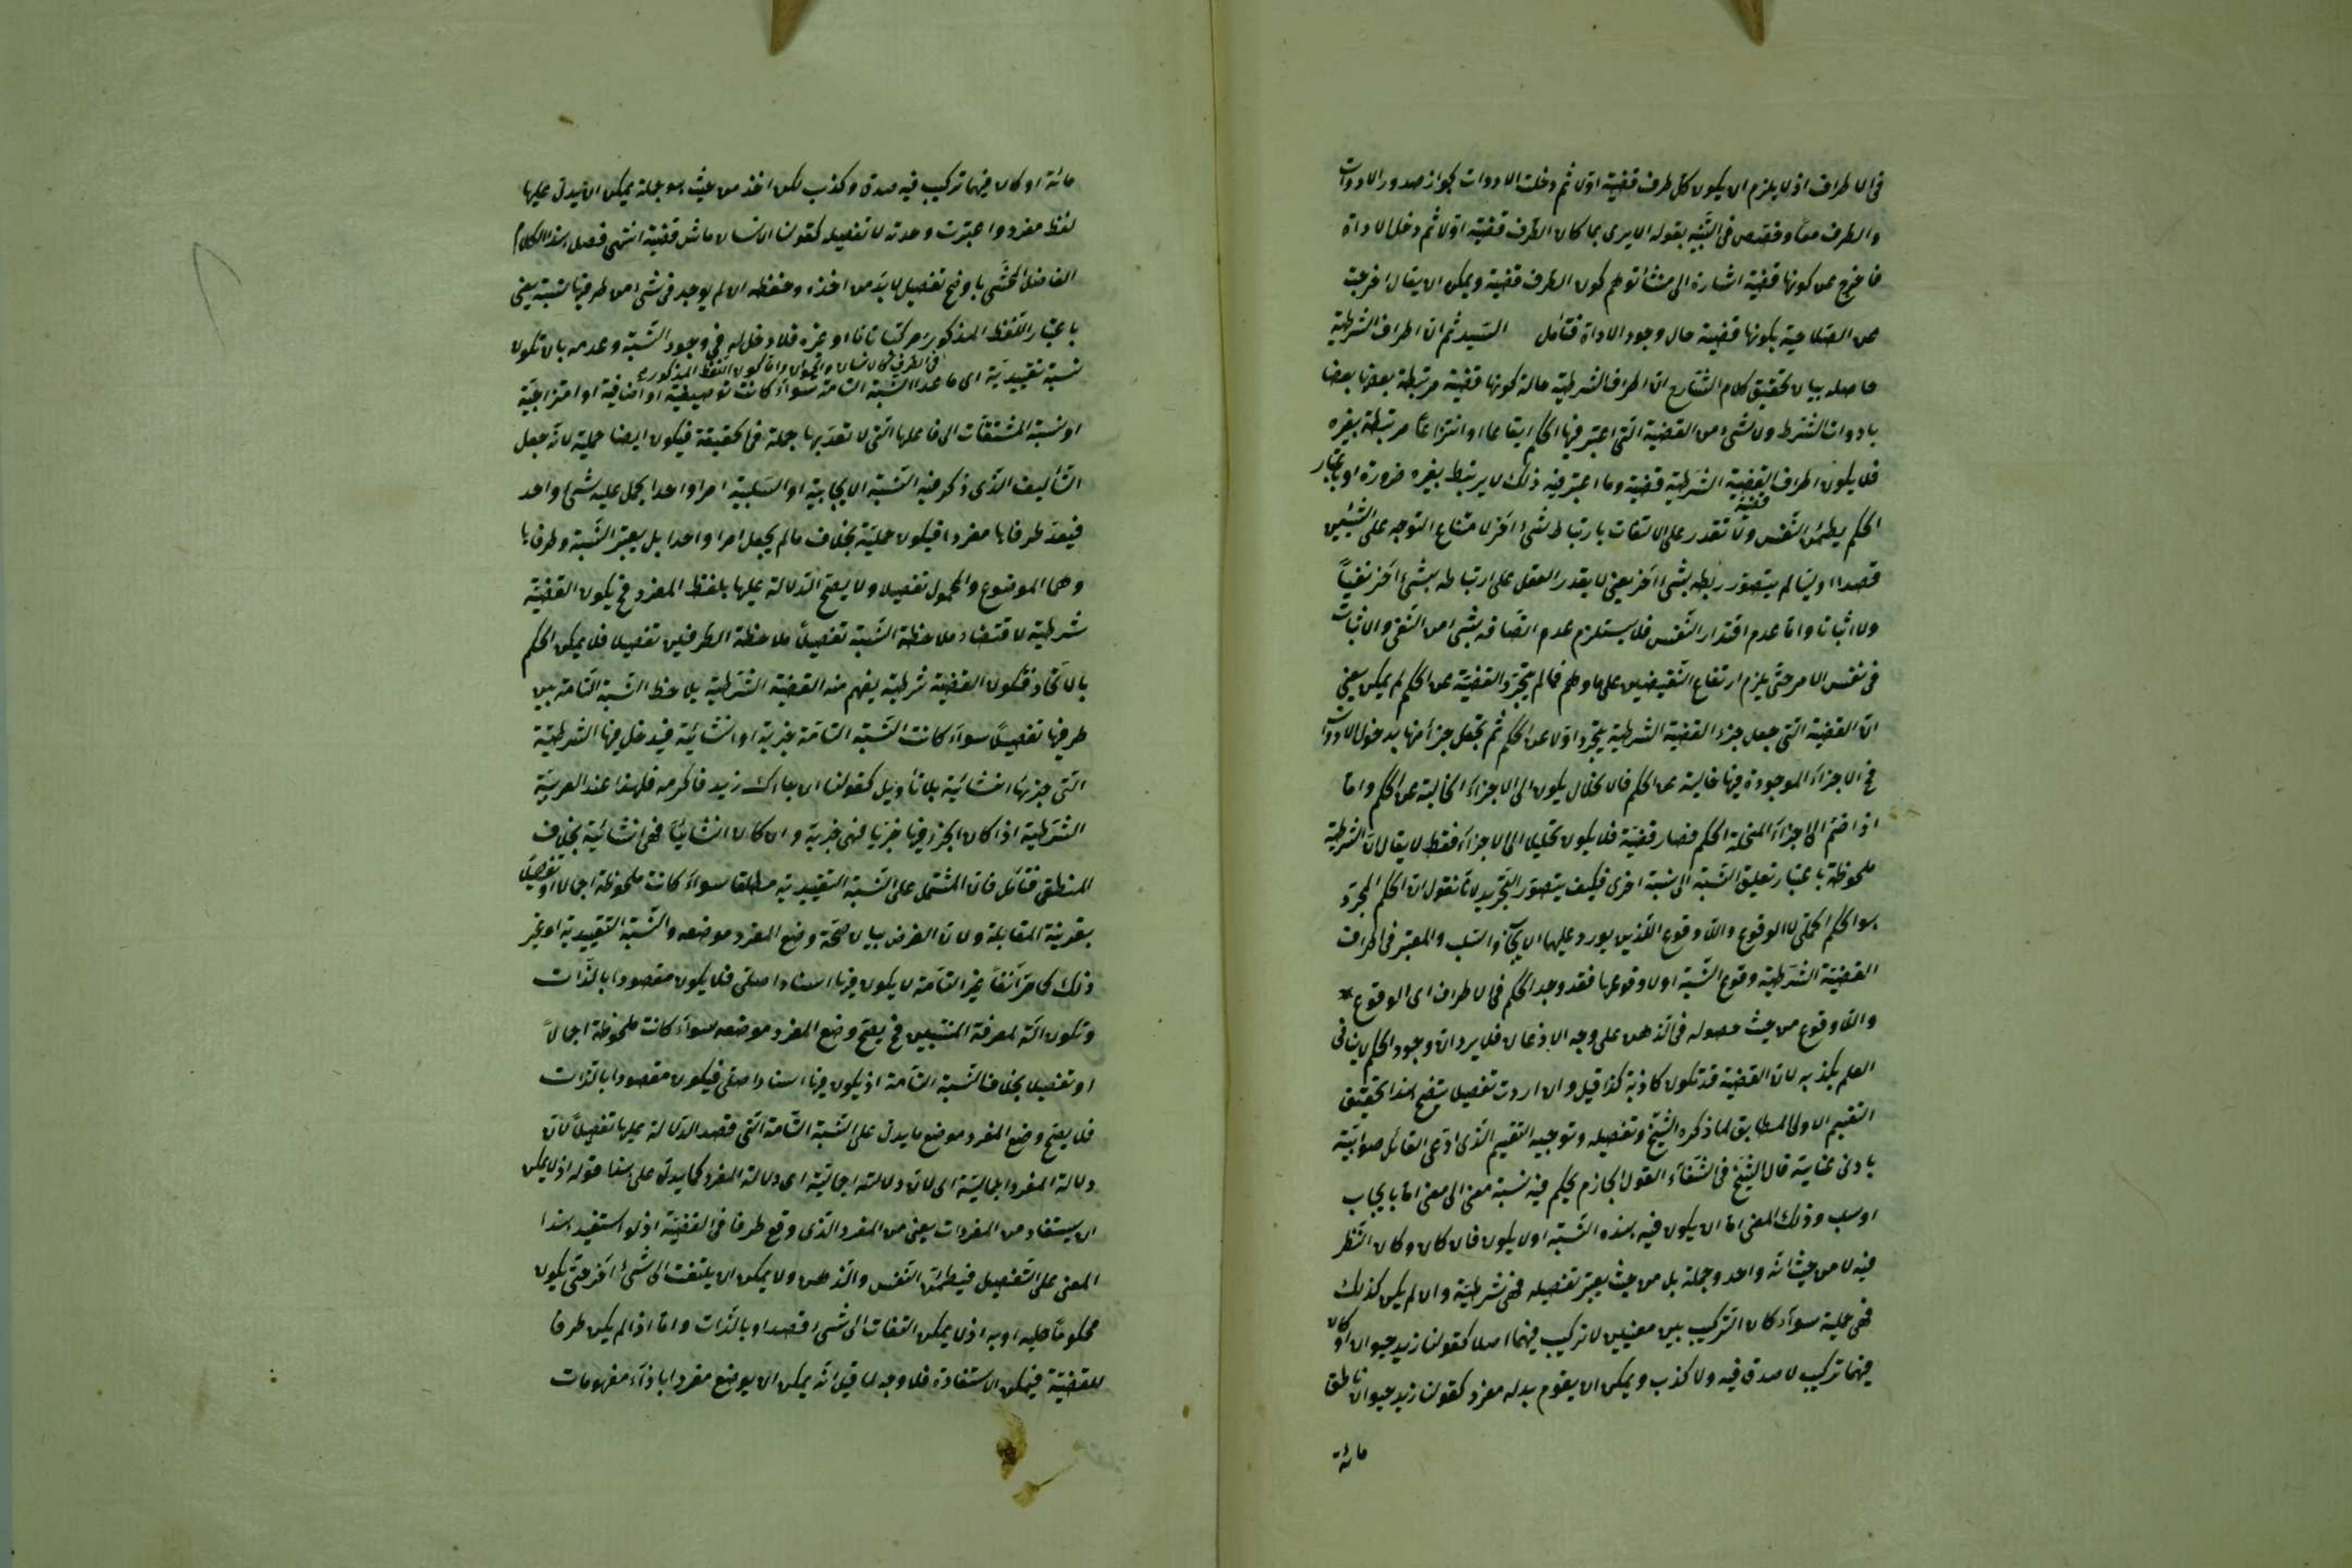 فى الاطراف اذ لا يلزم ان يكون كل طرف قضية اولا ثم دخلت الادوات لجواز صدور الادوات
والطرف معا وفصص فى التنبيه بقوله الا يرى بما كان الطرف قضية اولا ثم دخل الاداة
فاخرج عن كونها قضية اشارة الى منشأ توهم كون الطرف قضية ويمكن ان يقال اخرجت
عن الصلاحية بكونها قضية حال وجود الاداة فتأمل السيد ثم ان اطراف الشرطية
حاصله بيان تحقيق كلام الشارح ان اطراف الشرطية حالة كونها قضية مرتبطة بعضها بعضا
بادوات الشرط ولا شىء من القضية التى اعتبر فيها الحكم ايقاعا او انتزاعا مرتبطة بغيره
فلا يكون اطراف القضية الشرطية قضية وما اعتبر فيه ذلك لا يرتبط بغيره ضرورة او باعتبار
الحكم يطمئن النفس ولا تقدر على الالتفات بارتباط شىء آخر لامتناع التوجه على الشيئين
قصدا وبينا لم يتصور ربطه بشىء آخر يعنى لا يقدر العقل على ارتباطه بشىء آخر نفيا
ولا اثباتا واما عدم اقتدار النفس فلا يستلزم عدم اتصافه بشىء من النفى والاثبات
فى نفس الامر حتى يلزم ارتفاع النقيضين على ما وهم فما لم يتجرد القضية عن الحكم لم يمكن يعنى
ان القضية التى جعل جزء القضية الشرطية يتجرد اولا عن الحكم ثم تجعل جزأ منها بدخول الادوات
فح الاجزاء الموجودة فيها خالية عن الحكم فالانحلال يكون الى الاجزاء الخالية عن الحكم واما
اذا ضم الى اجزاء المنحلة الحكم فصار قضية فلا يكون تحليلا الى الاجزاء فقط لا يقال ان الشرطية
ملحوظة باعتبار تعليق النسبة الى نسبة اخرى فكيف يتصور التجريد لانا نقول ان الحكم المجرد
هو الحكم الحملى لا الوقوع واللا وقوع اللذين يورد عليهما الايجاب والسلب والمعتبر فى اطراف
القضية الشرطية وقوع النسبة او لا وقوعها فقد وجد الحكم فى الاطراف اى الوقوع
واللا وقوع من حيث حصوله فى الذهن على وجه الاذعان فلا يرد ان وجود الحكم لا ينافى
العلم بكذبه لان القضية قد تكون كاذبة كذا قيل وان اردت تفصيل ينضح هذا التحقيق
التقسيم الاولى المطابق لما ذكره الشيخ وتفصيله وتوجيه التقسيم الذى ادعى القائل صوابيته
بادنى عناية قال الشيخ فى الشفاء القول الجازم يحكم فيه نسبة معنى الى معنى اما بايجاب
او سلب وذلك المعنى اما ان يكون فيه هذه النسبة او لا يكون فان كان وكان النظر
فيه لا من حيث انه واحد وجملة بل من حيث يعتبر تفصيله فهى شرطية وان لم يكن كذلك
فهى حملية سواء كان التركيب بين معنيين لا تركيب فيهما اصلا كقولنا زيد حيوان او كان
فيهما تركيب لا صدق فيه ولا كذب ويمكن ان يقوم بدله مفرد كقولنا زيد حيوان ناطق
مائة
مائة او كان فيهما تركيب فيه صدق وكذب لكن اخذ من حيث هو جملة يمكن ان يدل عليها
لفظ مفرد واعتبرت وحدته لا تفصيله كقولنا الانسان ماش قضية انتهى فصل هذا الكلام
الفاضل المحشى باوضح تفصيل لا بد من اخذه وحفظه ان لم يوجد فى شىء من طرفيها نسبة يعنى
باعتبار اللفظ المذكور مركبا تاما او غيره فلا دخل له فى وجود النسبة وعدمه بان تكون
فى الطرفى كالانسان والحيوان واما كون اللفظ المذكور
نسبة تقييدية اى ما عدا النسبة التامة سواء كانت توصيفية او اضافية او امتزاجية
او نسبة المشتقات الى فاعلها التى لا تعد بها جملة فى الحقيقة فيكون ايضا حملية لانه جعل
التأليف الذى ذكر فيه النسبة الايجابية او السلبية امرا واحدا يحمل عليه شىء واحد
فيعد طرفاها مفردا فيكون حملية بخلاف ما لم يجعل امرا واحدا بل يعتبر النسبة وطرفاها
وهما الموضوع والمحمول تفصيلا ولا يصح الدلالة عليها بلفظ المفرد فح يكون القضية
شرطية لاقتضاء ملاحظة النسبة تفصيلا ملاحظة الطرفين تفصيلا فلا يمكن الحكم
بالاتحاد فتكون القضية شرطية يفهم منه القضية الشرطية يلاحظ النسبة التامة بين
طرفيها تفصيلا سواء كانت النسبة التامة خبرية او انشائية فيدخل فيها الشرطية
التى جزئها انشائية بلا تأويل كقولنا ان جاءك زيد فاكرمه فلهذا عند العربية
الشرطية اذا كان الجزء فيها خبريا فهى خبرية وان كان انشائيا فهى انشائية بخلاف
المنطقى فتأمل فان المشتمل على النسبة التقييدية مطلقا سواء كانت ملحوظة اجمالا او تفصيلا
بقرينة المقابلة ولان الغرض بيان صحة وضع المفرد موضعه والنسبة التقييدية او غير
ذلك كما مر آنفا غير التامة لا يكون فيها اسنادا اصلى فلا يكون مقصودا بالذات
وتكون آلة لمعرفة المنتسبين فح يصح وضع المفرد موضعه سواء كانت ملحوظة اجمالا
او تفصيلا بخلاف النسبة التامة اذ يكون فيها اسنادا اصلى فيكون مقصودا بالذات
فلا يصح وضع المفرد موضع ما يدل على النسبة التامة التى قصد الدلالة عليها تفصيلا لان
دلالة المفرد اجمالية اى لان دلالته اجمالية اى دلالة المفرد كما يدل على هذا قوله اذ لا يمكن
ان يستفاد من المفردات يعنى من المفرد الذى وقع طرفا فى القضية اذ لو استفيد هذا
المعنى على التفصيل فيطمئن النفس والذهن ولا يمكن ان يلتفت الى شىء آخر حتى يكون
محكوما عليه او به اذ لا يمكن التفات الى شىء قصدا وبالذات واما اذا لم يكن طرفا
للقضية فيمكن الاستفادة فلا وجه لما قيل انه يمكن ان يوضع مفردا باذاء مفهومات